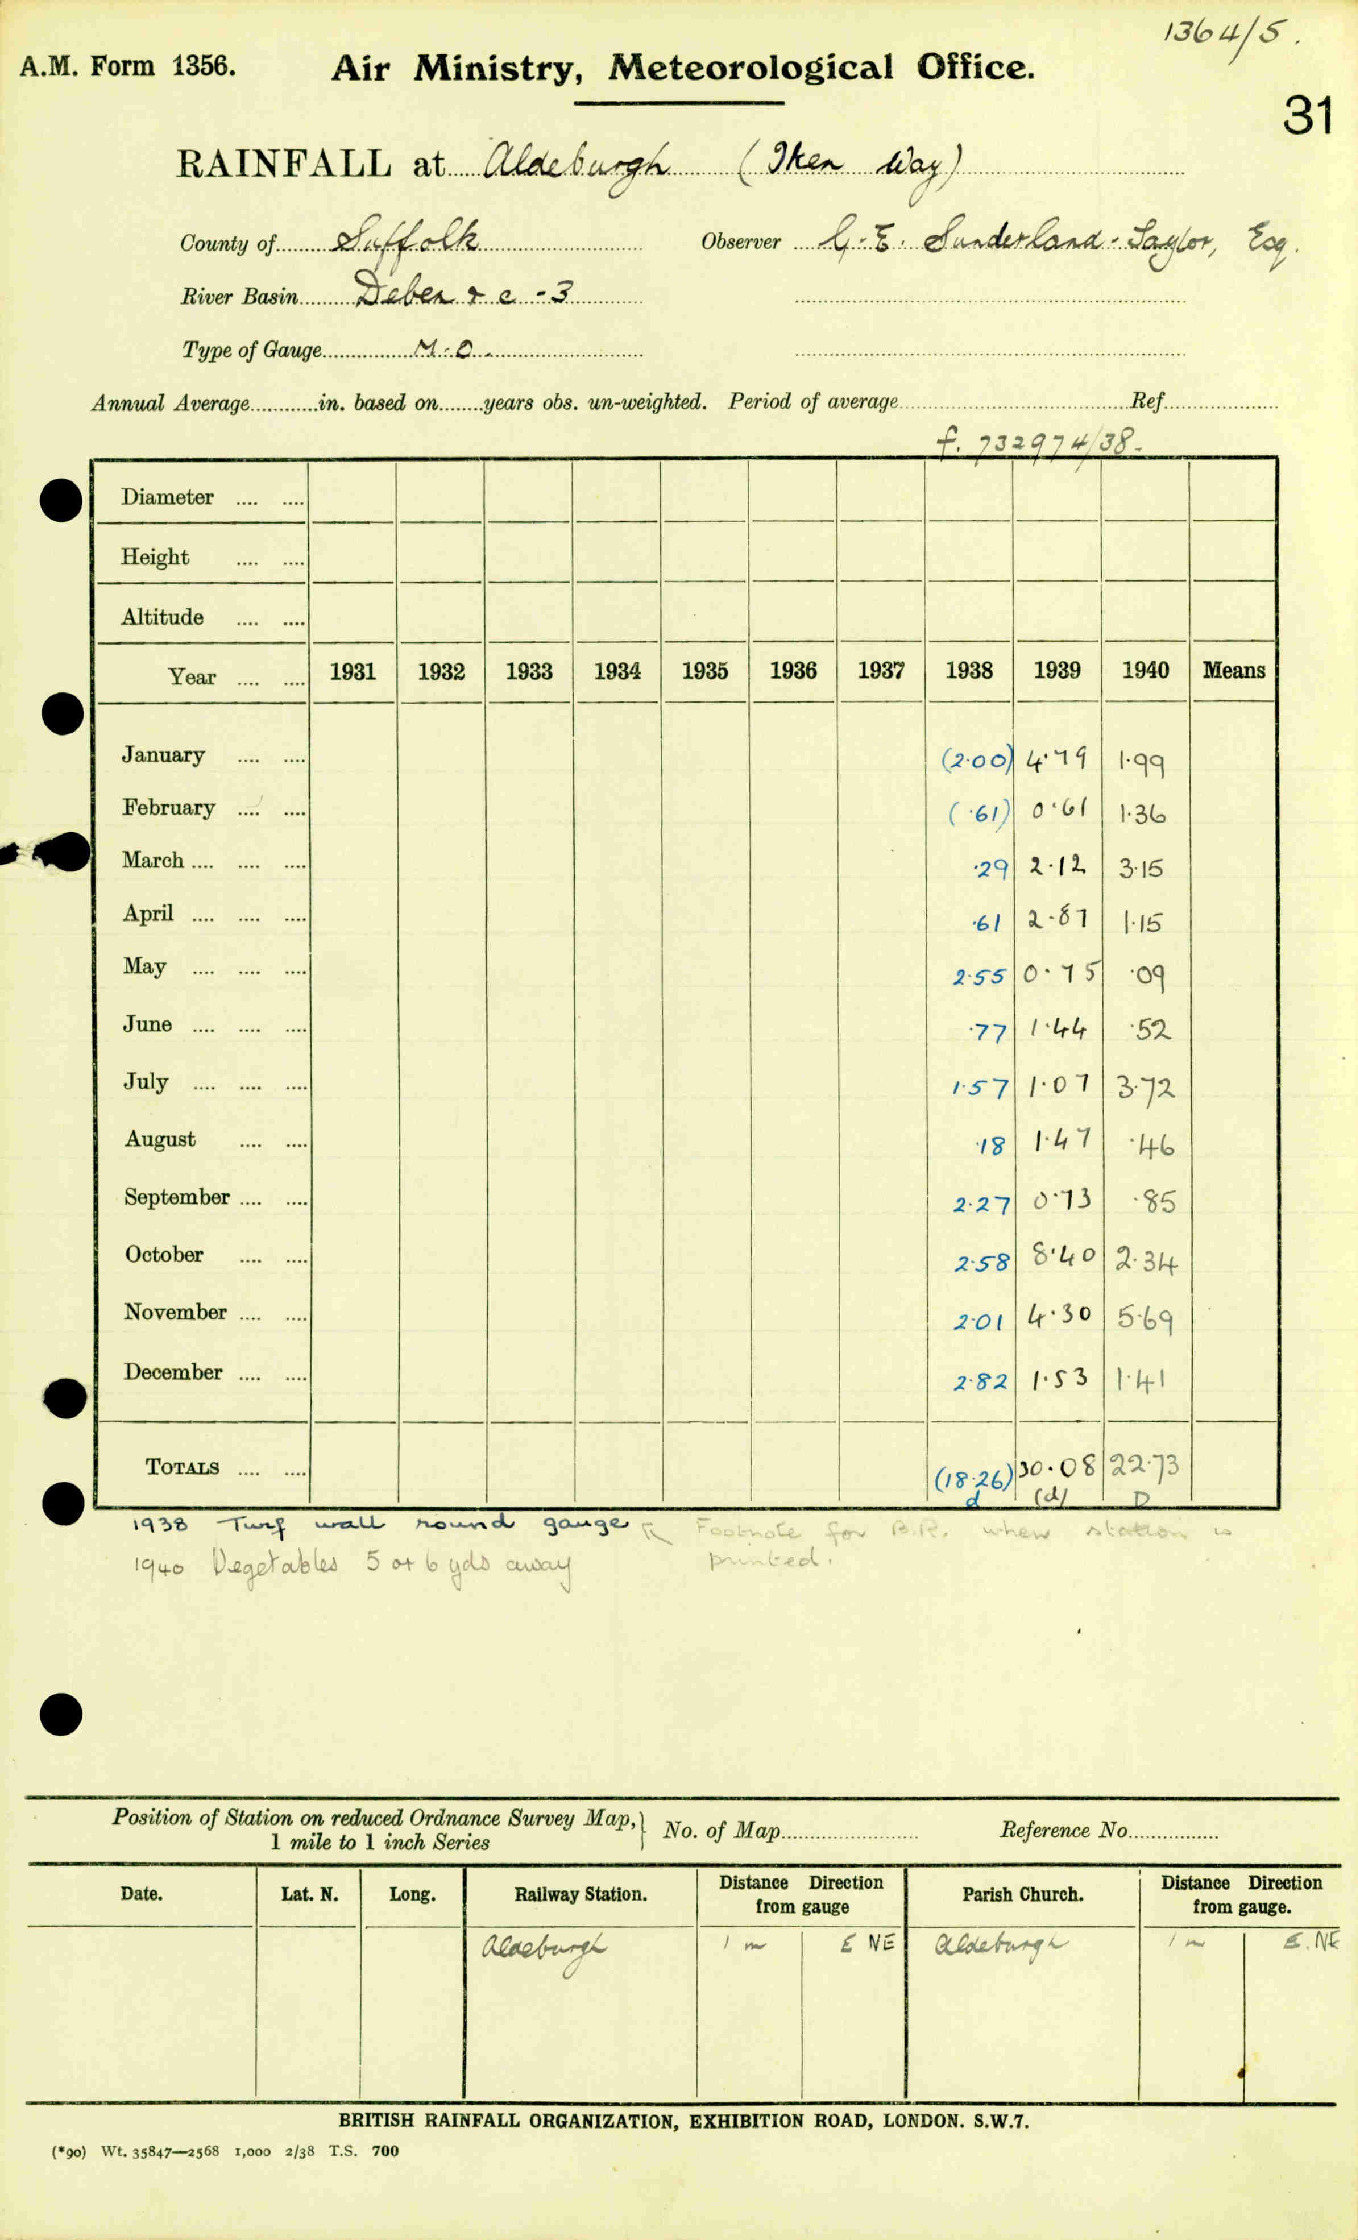 1364/5.
A.M. Form 1356. Air Ministry, Meteorological Office.
31
RAINFALL at Aldeburgh (Iken Way)
County of Suffolk Observer G. E. Sunderland-Taylor, Esq.
River Basin Deben & c - 3
Type of Gauge M.O.
Annual Average in. based on years obs. un-weighted. Period of average Ref.
f. 732974/38-
Diameter .... ....
Height .... ....
Altitude .... ....
Year .... .... 1931 1932 1933 1934 1935 1936 1937 1938 1939 1940 Means
January .... .... (2.00) 4.79 1.99
February .... .... (.61) 0.61 1.36
March .... .... .... .29 2.12 3.15
April .... .... .... .61 2.87 1.15
May .... .... .... 2.55 0.75 .09
June .... .... .... .77 1.44 .52
July .... .... .... 1.57 1.07 3.72
August .... .... .18 1.47 .46
September .... .... 2.27 0.73 .85
October .... .... 2.58 8.40 2.34
November .... .... 2.01 4.30 5.69
December .... .... 2.82 1.53 1.41
TOTALS .... .... (18.26) 30.08 22.73
d (d) D
1938 Turf wall round gauge Footnote for B.R. when station is
printed.
1940 Vegetables 5 or 6 yds away
Position of Station on reduced Ordnance Survey Map,
1 mile to 1 inch Series
No. of Map Reference No.
Date. Lat. N. Long. Railway Station. Distance from gauge Direction Parish Church. Distance from gauge. Direction
Aldeburgh 1 m E NE Aldeburgh 1 m E. NE
BRITISH RAINFALL ORGANIZATION, EXHIBITION ROAD, LONDON. S.W.7.
(*90) Wt. 35847—2568 1,000 2/38 T.S. 700